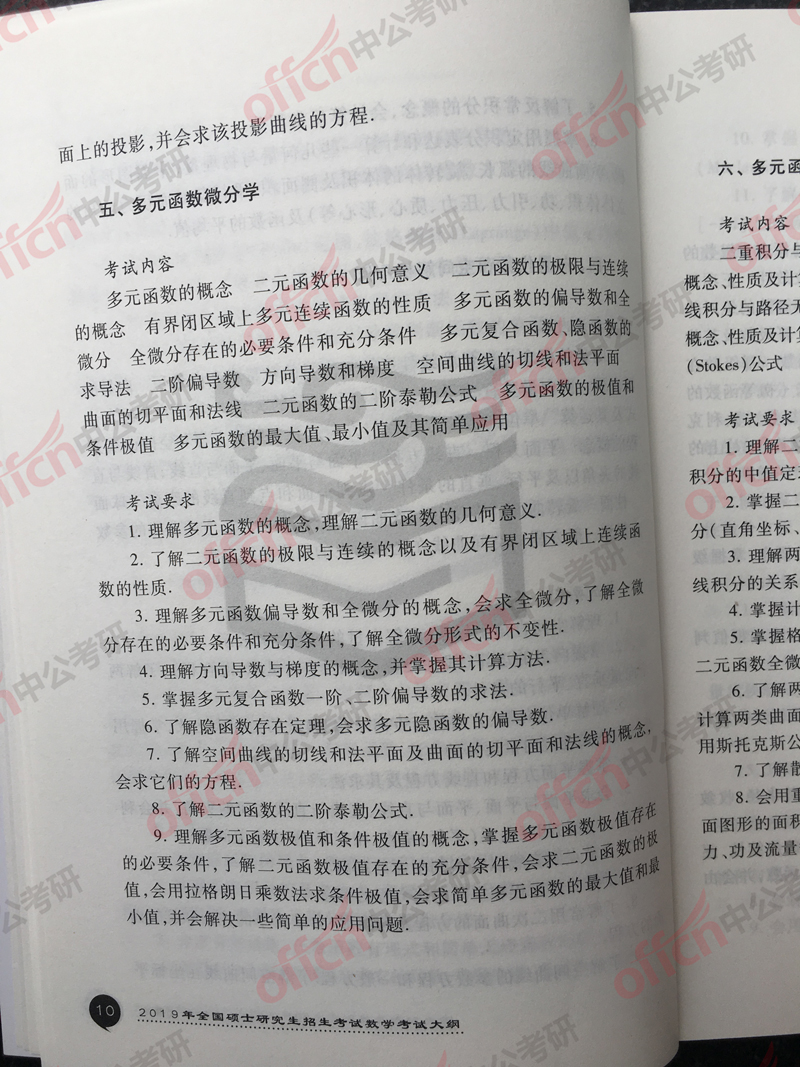 面上的投影,并会求该投影曲线的方程.
五、多元函数微分学
考试内容
多元函数的概念 二元函数的几何意义 二元函数的极限与连续
的概念 有界闭区域上多元连续函数的性质 多元函数的偏导数和全
微分 全微分存在的必要条件和充分条件 多元复合函数、隐函数的
求导法 二阶偏导数 方向导数和梯度 空间曲线的切线和法平面
曲面的切平面和法线 二元函数的二阶泰勒公式 多元函数的极值和
条件极值 多元函数的最大值、最小值及其简单应用
考试要求
1. 理解多元函数的概念,理解二元函数的几何意义.
2. 了解二元函数的极限与连续的概念以及有界闭区域上连续函
数的性质.
3. 理解多元函数偏导数和全微分的概念,会求全微分,了解全微
分存在的必要条件和充分条件,了解全微分形式的不变性.
4. 理解方向导数与梯度的概念,并掌握其计算方法.
5. 掌握多元复合函数一阶、二阶偏导数的求法.
6. 了解隐函数存在定理,会求多元隐函数的偏导数.
7. 了解空间曲线的切线和法平面及曲面的切平面和法线的概念,
会求它们的方程.
8. 了解二元函数的二阶泰勒公式.
9. 理解多元函数极值和条件极值的概念,掌握多元函数极值存在
的必要条件,了解二元函数极值存在的充分条件,会求二元函数的极
值,会用拉格朗日乘数法求条件极值,会求简单多元函数的最大值和最
小值,并会解决一些简单的应用问题.
10 2019年全国硕士研究生招生考试数学考试大纲
六、多元函
考试内容
二重积分与
概念、性质及计算
线积分与路径无
概念、性质及计算
(Stokes)公式
考试要求
1. 理解二
积分的中值定理
2. 掌握二
分(直角坐标、
3. 理解两
线积分的关系
4. 掌握计
5. 掌握格
二元函数全微
6. 了解两
计算两类曲面
用斯托克斯公
7. 了解散
8. 会用重
面图形的面积
力、功及流量
offcn中公考研